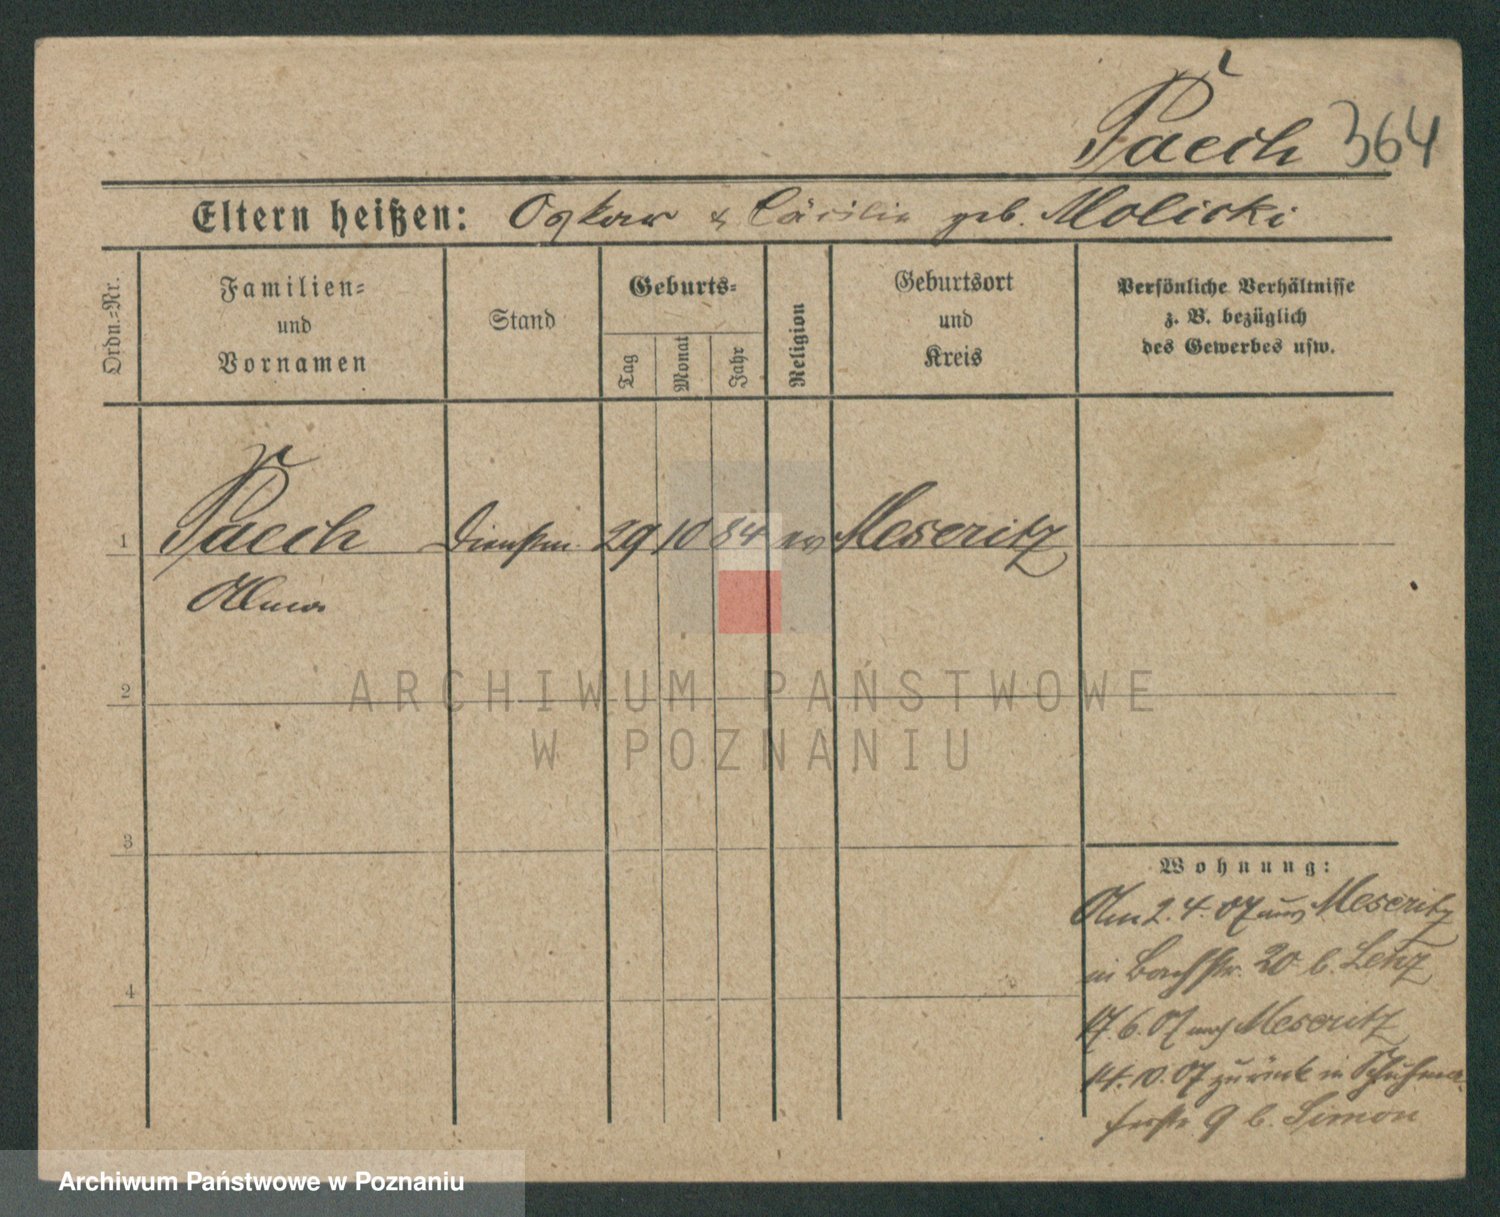 Paech 364
Eltern heißen: Oskar & Cäcilie geb. Molicki
Ordn.-Nr.
Familien-
und
Vornamen
Stand
Geburts-
Tag
Monat
Jahr
Religion
Geburtsort
und
Kreis
Persönliche Verhältnisse
z. B. bezüglich
des Gewerbes usw.
1 Paech Dienstm. 29 10 84 ev Meseritz
Alma
2
3
4
Wohnung:
Am 2. 4. 07 aus Meseritz
in Bachstr. 20 b. Lenz
17. 6. 07 nach Meseritz
14. 10. 07 zurück in Schuhma-
9 b. Simon
ARCHIWUM PAŃSTWOWE
W POZNANIU
Archiwum Państwowe w Poznaniu